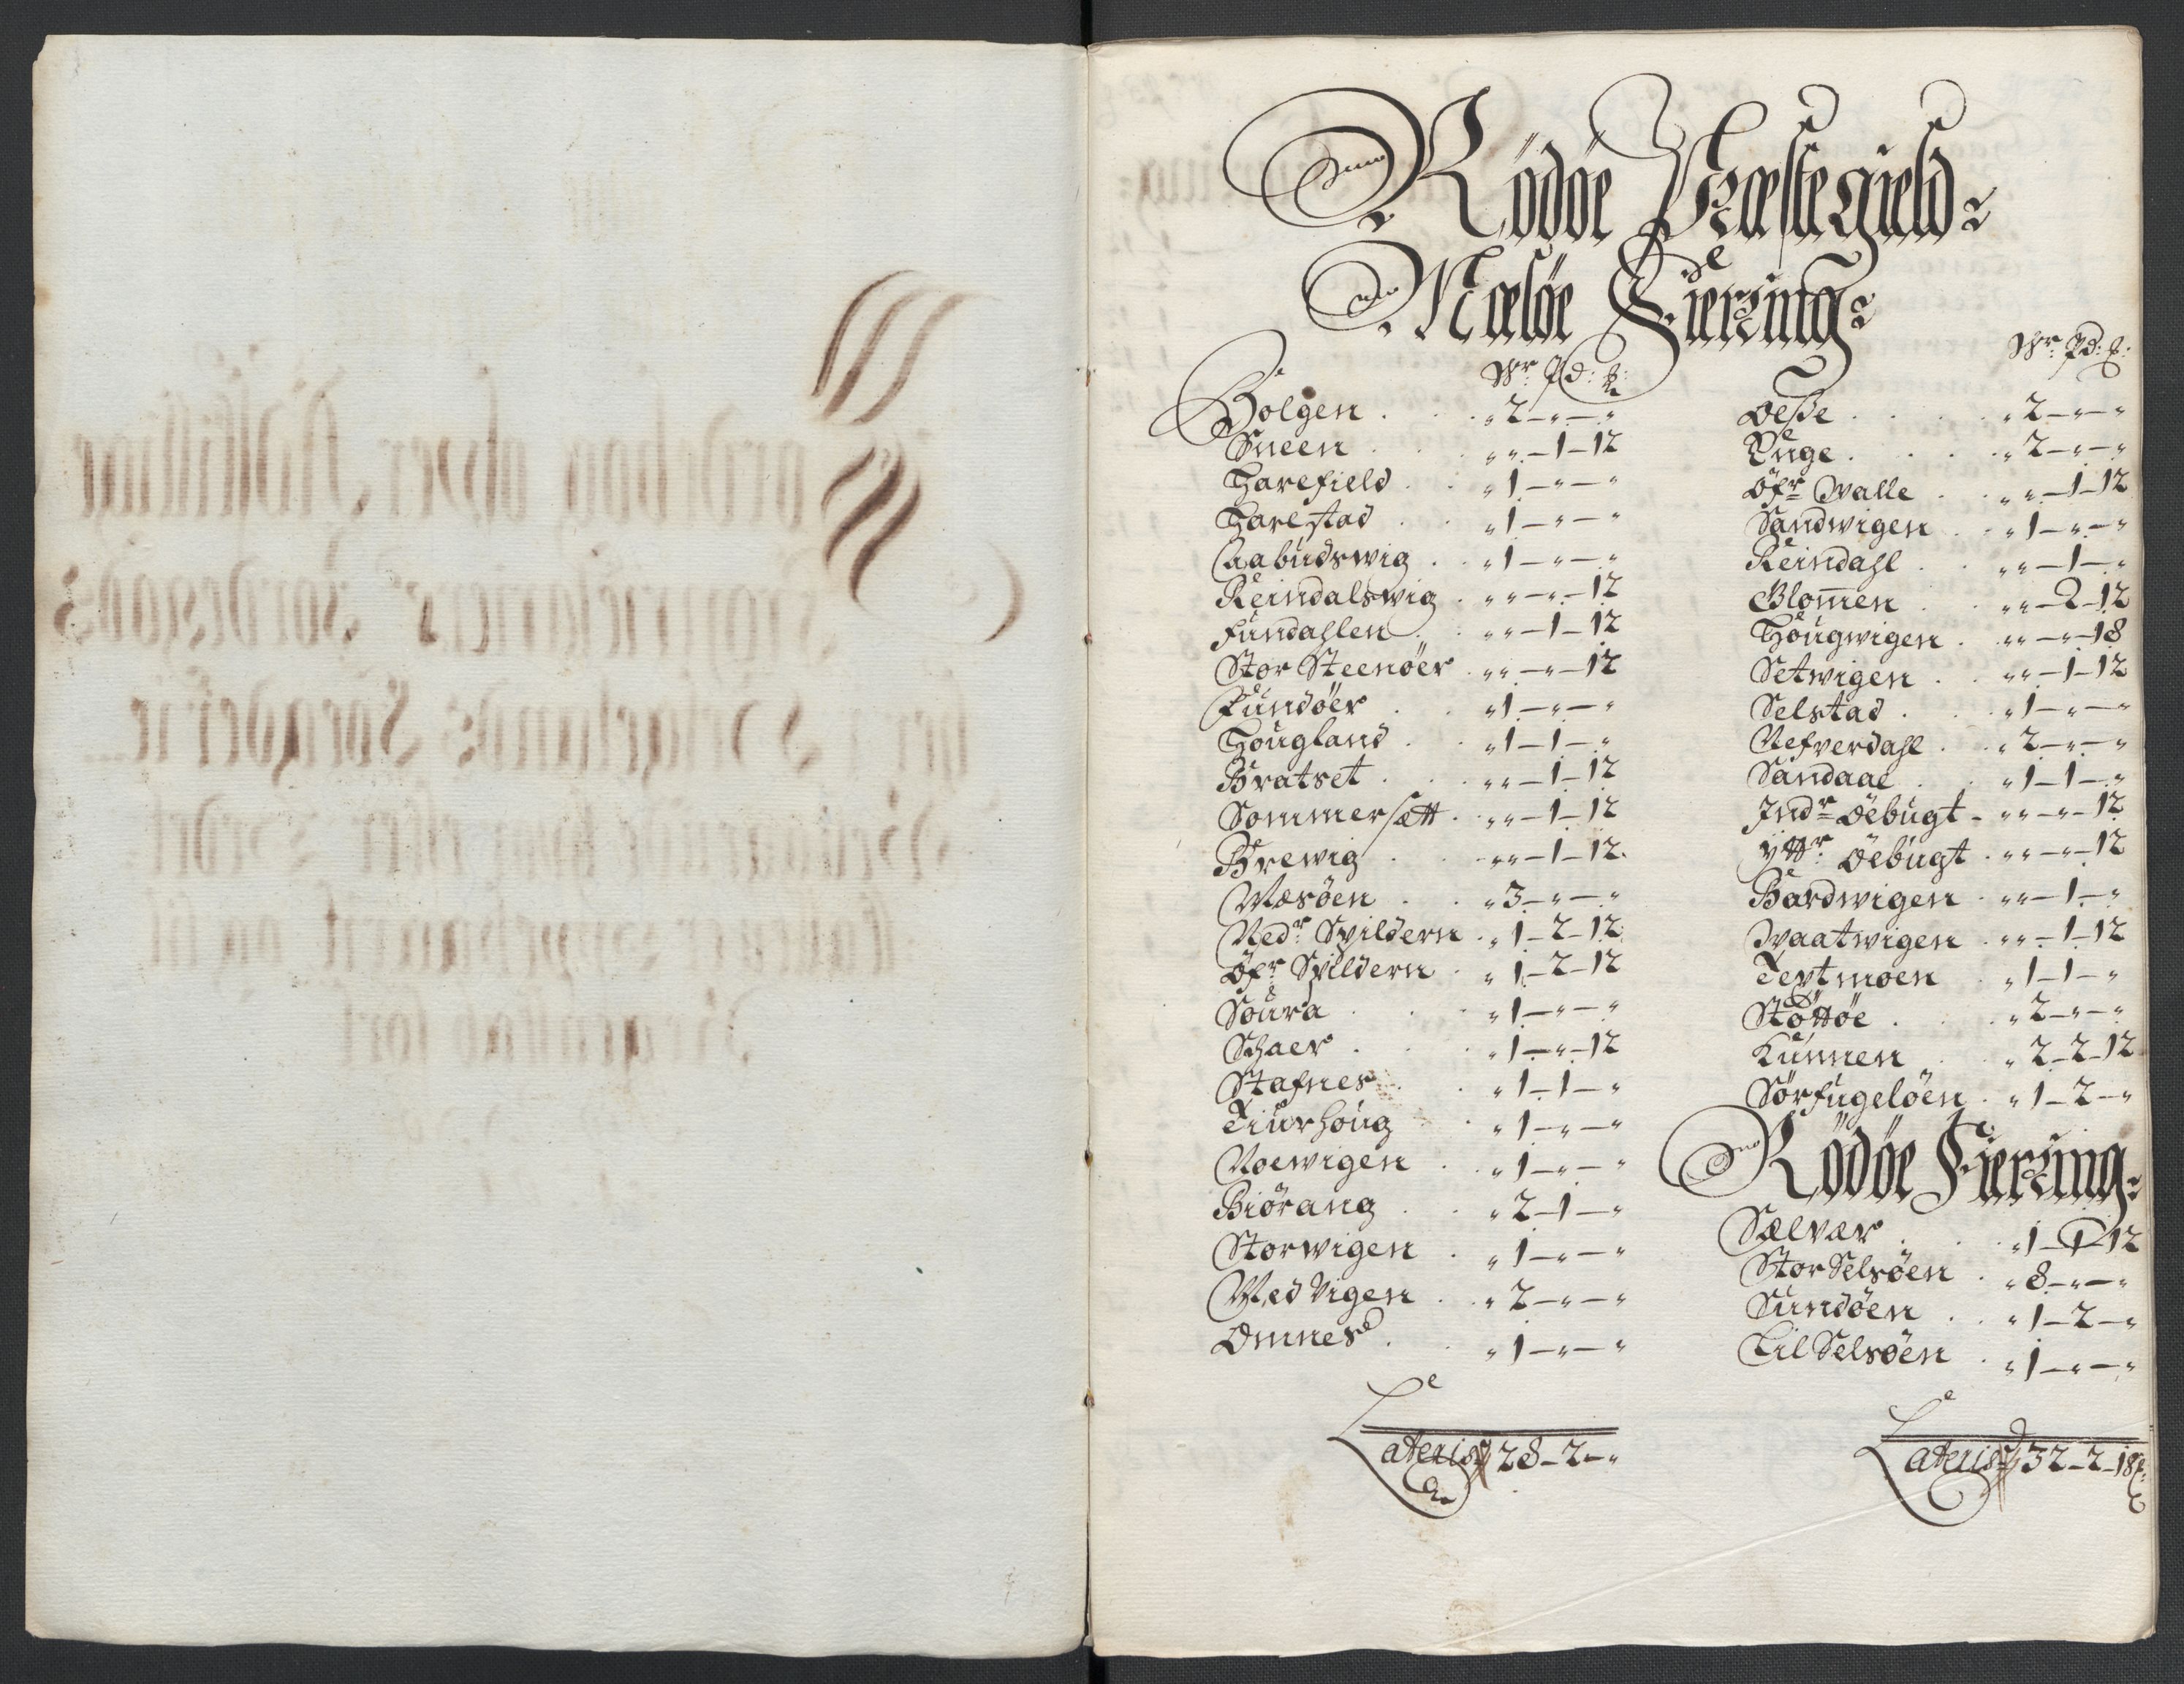 Rödöe Præstegield:
Meløe Fierring:
Wr: Pd: ℔:
Bolgen . . . „ 2 – „ – „
Sneen . . „ „ – 1 – 12
Harefield . . „ 1 – „ – „
Harestad . . „ 1 – „ – „
Aabudswig . . „ 1 – „ – „
Reindalswig . „ „ – „ – 12
Fundahlen . „ „ – 1 – 12
Stor Steenöer . „ „ – „ – 12
Lundöer . „ 1 – „ – „
Hougland . „ 1 – 1 – „
Bratset . . „ „ – 1 – 12
Sommersætt . „ „ – 1 – 12
Brewig . . „ „ – 1 – 12
Mæsöen . . „ 3 – „ – „
Nedr Spildern . „ 1 – 2 – 12
Öfr Spildern . „ 1 – 2 – 12
Soura . . „ 1 – „ – „
Schaer . . „ 1 – „ – 12
Stafnes . . „ 1 – 1 – „
Tiurhoug . „ 1 – „ – „
Noewigen . „ 1 – „ – „
Biörang . „ 2 – 1 – „
Storwigen . „ 1 – „ – „
Wed Vigen . „ 2 – „ – „
Omnes . . „ 1 – „ – „
Lateris 28 – 2 – „
Wr: Pd: ℔:
Öeße . . . „ 2 – „ – „
Enge . . . „ 2 – „ – „
Öfr Walle . . „ „ – 1 – 12
Sandwigen . . „ 1 – „ – „
Reindahl . . „ „ – 1 – „
Glom̅en . . „ „ – 2 – 12
Hougwigen . „ „ – „ – 18
Setwigen . . „ „ – 1 – 12
Selstad . . „ 1 – „ – „
Nefverdahl . . „ 2 – „ – „
Sandaae . . „ 1 – 1 – „
Indr Öebugt . „ „ – „ – 12
Yttr Öebugt . „ „ – „ – 12
Bardwigen . „ „ – 1 – „
Waatwigen . „ „ – 1 – 12
Textmoen . „ 1 – 1 – „
Støttöe . . „ 2 – „ – „
Kunnen . „ 2 – 2 – 12
Sörfugelöen . „ 1 – 2 – „
Rödöe Fierring:
Sælvær . . „ 1 – 1 – 12
Stor Selsöen . „ 8 – „ – „
Sundöen . . „ 1 – 2 – „
Lil Selsöen . „ 1 – „ – „
Lateris 32 – 2 – 18 ℔: